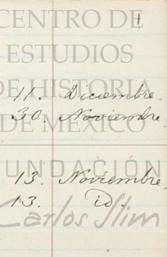 CENTRO DE
ESTUDIOS
DE HISTORIA
11. Diciembre.
30. Noviembre
DE MÉXICO
FUNDACIÓN
13. Noviembre.
13. id.
Carlos Slim